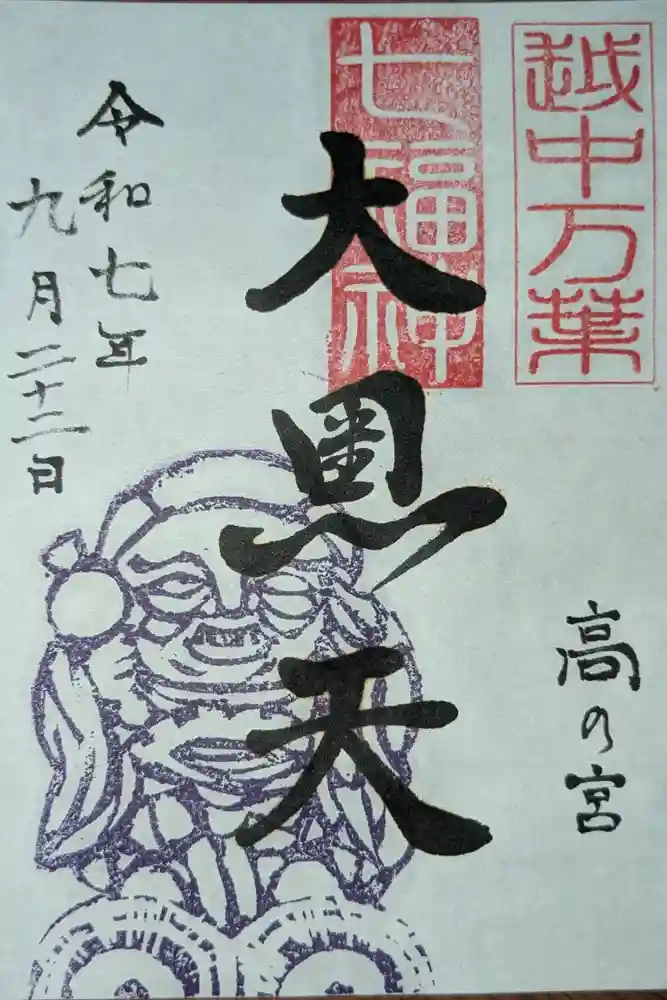 越中万葉
高の宮
七福神
大黒天
令和七年
九月二十二日